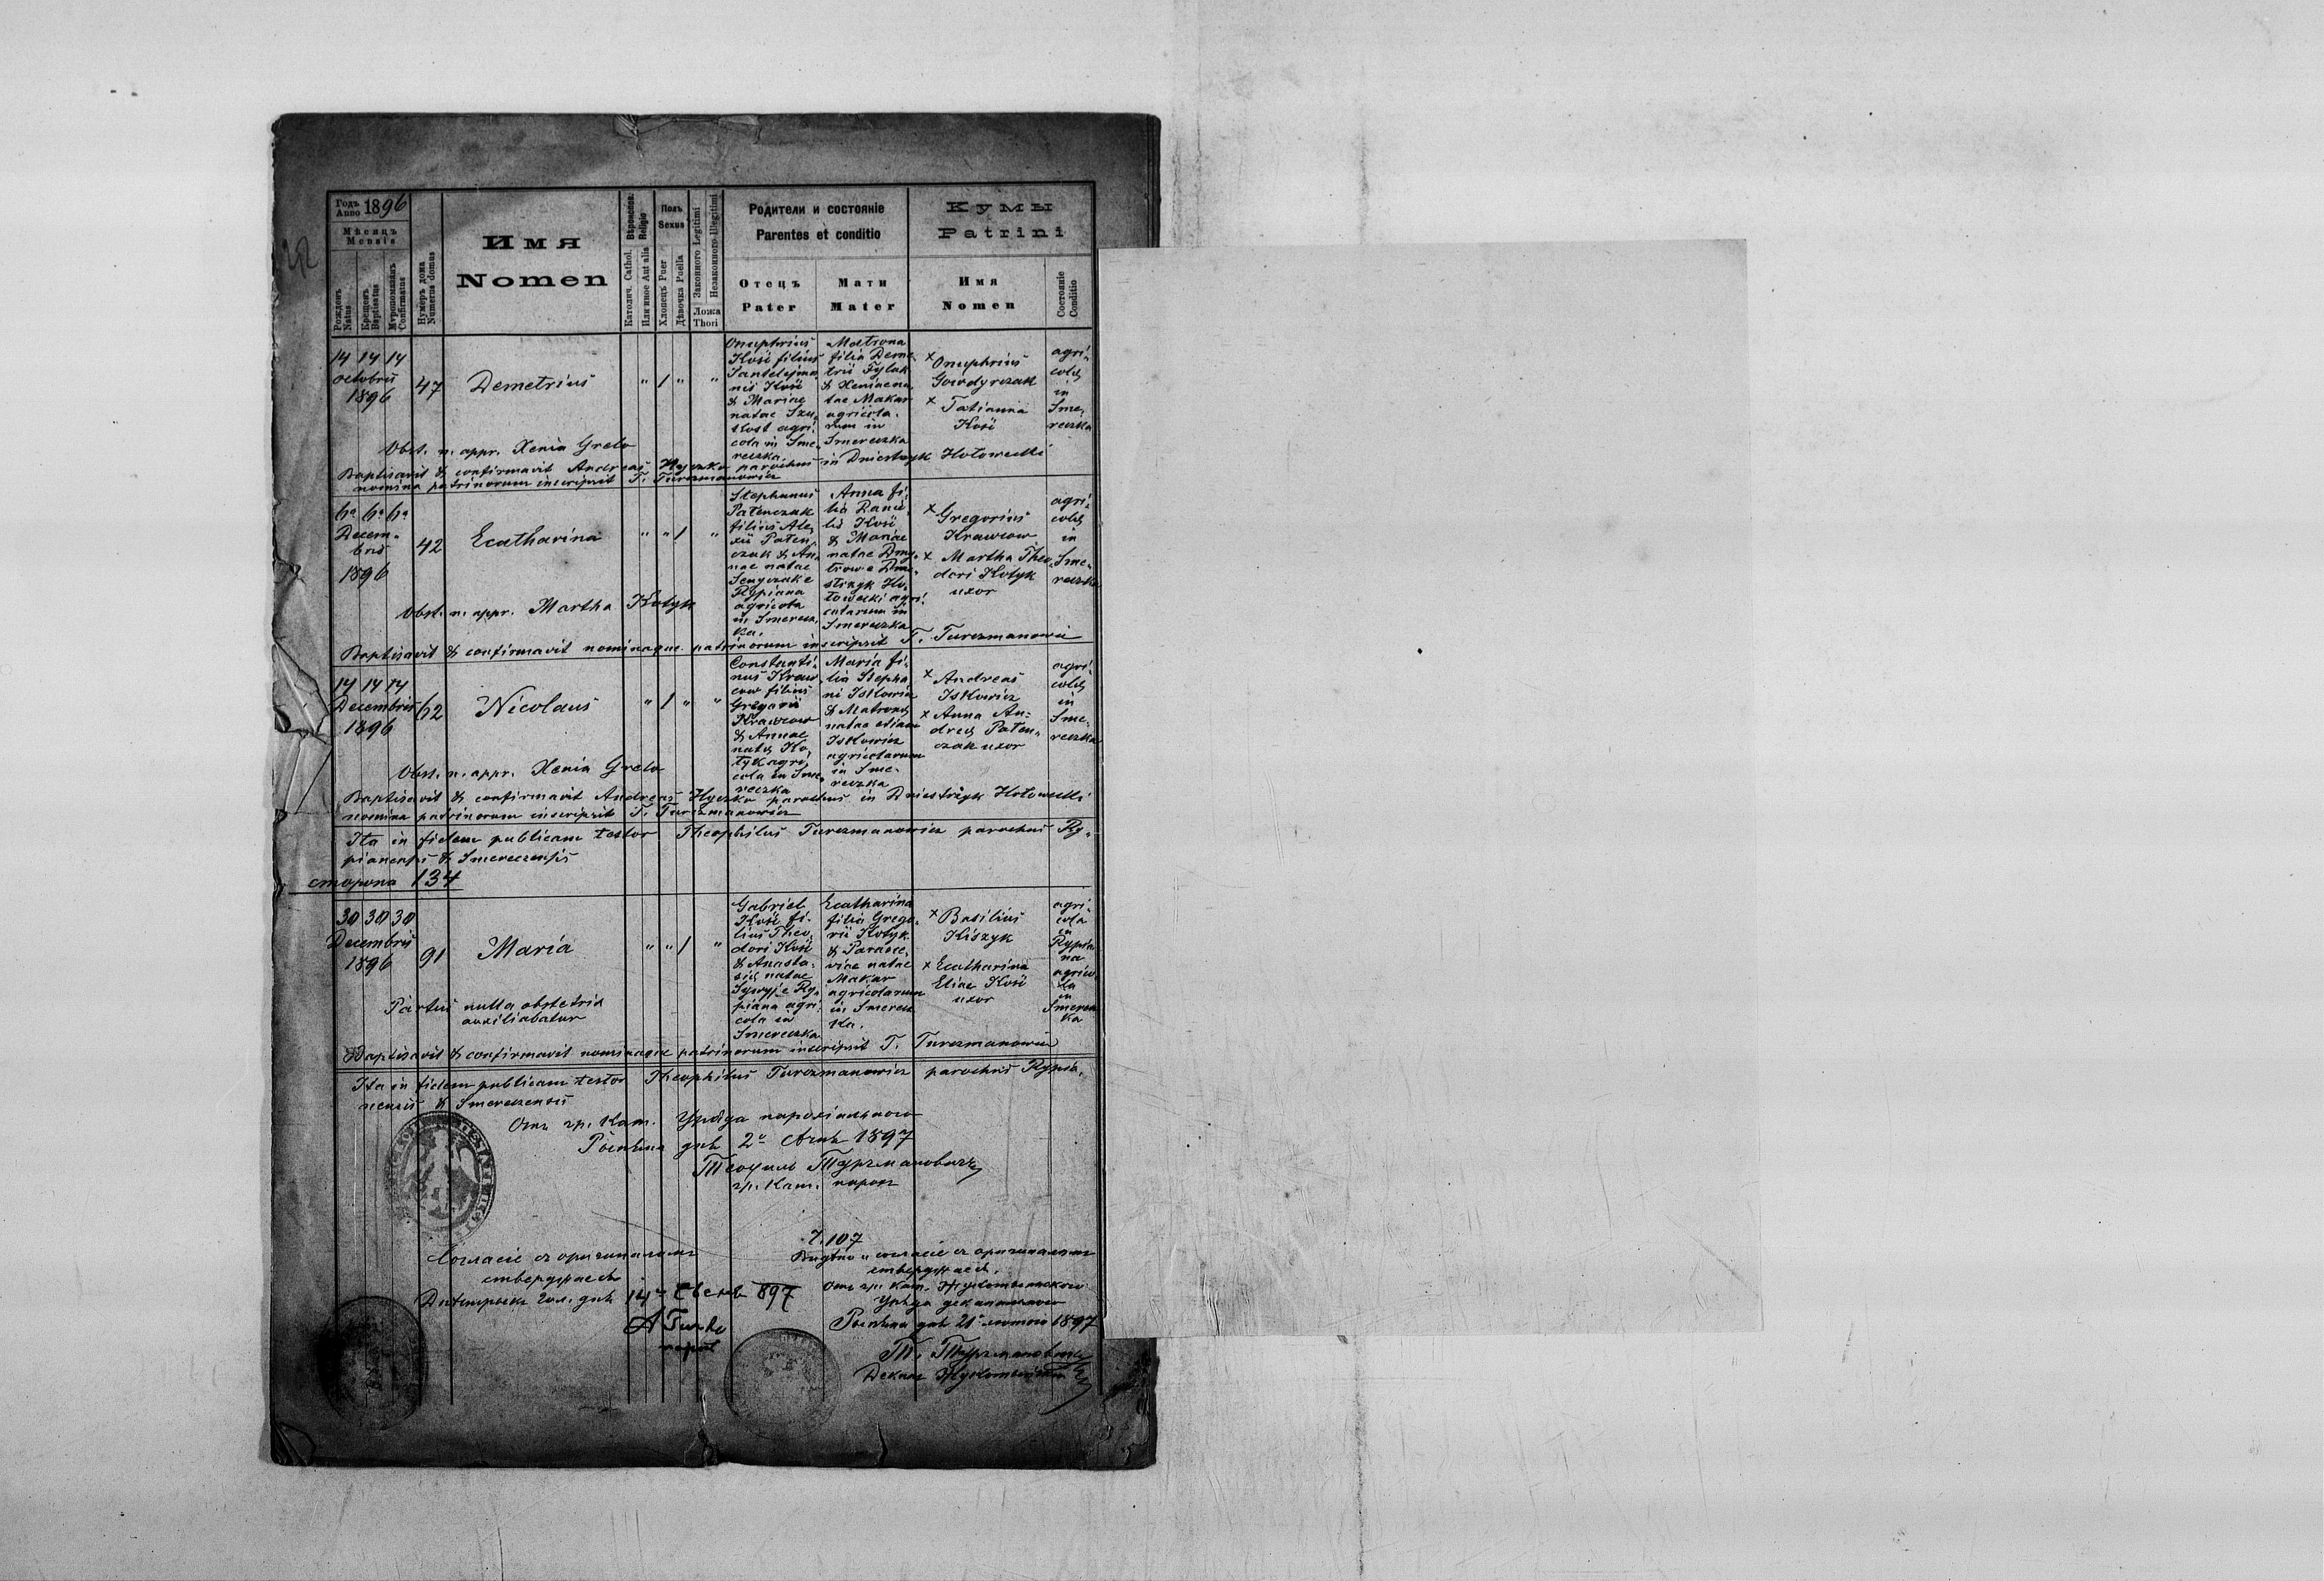 Годъ Anno 1896
Мѣсяцъ
Mensis
Рожденъ Natus
Крещенъ Baptisatus
Мѵропомазанъ Confirmatus
Нумеръ дома Numerus domus
Имя
Nomen
Вѣроисповѣд. Religio
Католич. Cathol.
Или иное Aut alia
Полъ
Sexus
Хлопецъ Puer
Дѣвочка Puella
Законного Legitimi
Незаконного Illegitimi
Ложа
Thori
Родители и состояніе
Parentes et conditio
Отецъ
Pater
Мати
Mater
Кумы
Patrini
Имя
Nomen
Состояніе
Conditio
14 14 14
octobris
1896
47
Demetrius
" / " "
Onuphrius
Kosź filius
Kosź
& Mariae
natae
agri-
cola in Sme-
reczka
Matrona
filia Deme-
trii Tylak
& Xeniae na-
tae Makar
agricola-
rum in
Smereczka
× Onuphrius
Gowdyrczak
× Tatianna
Kosź
agri-
colae
in
Sme-
reczka
Obst. n. appr. Xenia Grelo
Baptisavit & confirmavit Andreas Hyczko parochus in Dniestrzyk Hołowecki
nomina patrinorum inscripsit T. Turczmanowicz
6a 6a 6a
Decem-
bris
1896
42
Ecatharina
" " / "
Stephanus
Patenczak
filius Ale-
xii Paten-
czak & An-
nae natae
Senyczak e
Rypiana
agricola
in Smerecz-
ka.
Anna fi-
lia Dani-
lis Kosź
& Mariae
natae Dmy-
trow e Dnie-
strzyk Ho-
łowecki agri-
colarum in
Smereczka
× Gregorius
Krawcow
× Martha Theo-
dori Kotyk
uxor
agri-
colae
in
Sme-
reczka
Obst. n. appr. Martha Kotyk
Baptisavit & confirmavit nominaque patrinorum inscripsit T. Turczmanowicz
14 14 14
Decembris
1896
62
Nicolaus
" / " "
Constanti-
nus Kraw-
cow filius
Gregorii
Krawcow
& Annae
natae Ko-
tyk agri-
cola in Sme-
reczka
Maria fi-
lia Stepha-
ni Iskowicz
& Matronae
natae etiam
Iskowicz
agricolarum
in Sme-
reczka
× Andreas
Iskowicz
× Anna An-
dreae Paten-
czak uxor
agri-
colae
in
Sme-
reczka
Obst. n. appr. Xenia Grelo
Baptisavit & confirmavit Andreas Hyczko parochus in Dniestrzyk Hołowecki
nomina patrinorum inscripsit T. Turczmanowicz
Ita in fidem publicam testor Theophilus Turczmanowicz parochus Ry-
pianensis & Smereczensis
сторона 134
30 30 30
Decembris
1896
91
Maria
" " / "
Gabriel
Kosź fi-
lius Theo-
dori Kosź
& Anasta-
siae natae
e Ry-
piana agri-
cola in
Smereczka
Ecatharina
filia Grego-
rii Kotyk
& Parasce-
viae natae
Makar
agricolarum
in Smerecz-
ka.
× Basilius
Kiszyk
× Ecatharina
Eliae Kosź
uxor
agri-
cola
in
Rypia-
na
agrico-
la
in
Smerecz-
ka
Partui nulla obstetrix
auxiliabatur
Baptisavit & confirmavit nominaque patrinorum inscripsit T. Turczmanowicz
Ita in fidem publicam testor Theophilus Turczmanowicz parochus Rypia-
nensis & Smereczensis
Отъ гр. кат. Уряда парохіального
Рыпяна днѣ 2 1897
Теофиль Турчмановичъ
гр. кат. парохъ
Ч. 107
Согласіе съ оригиналомъ
стверджаесь
14 897
парох
Видѣно и согласіе съ оригиналомъ
стверджаесь.
Отъ гр. кат. Жукотинского
Уряда деканального
Рыпяна днѣ 21 лютого 1897
Т. Турчмановичъ
Деканъ Жукотинскій